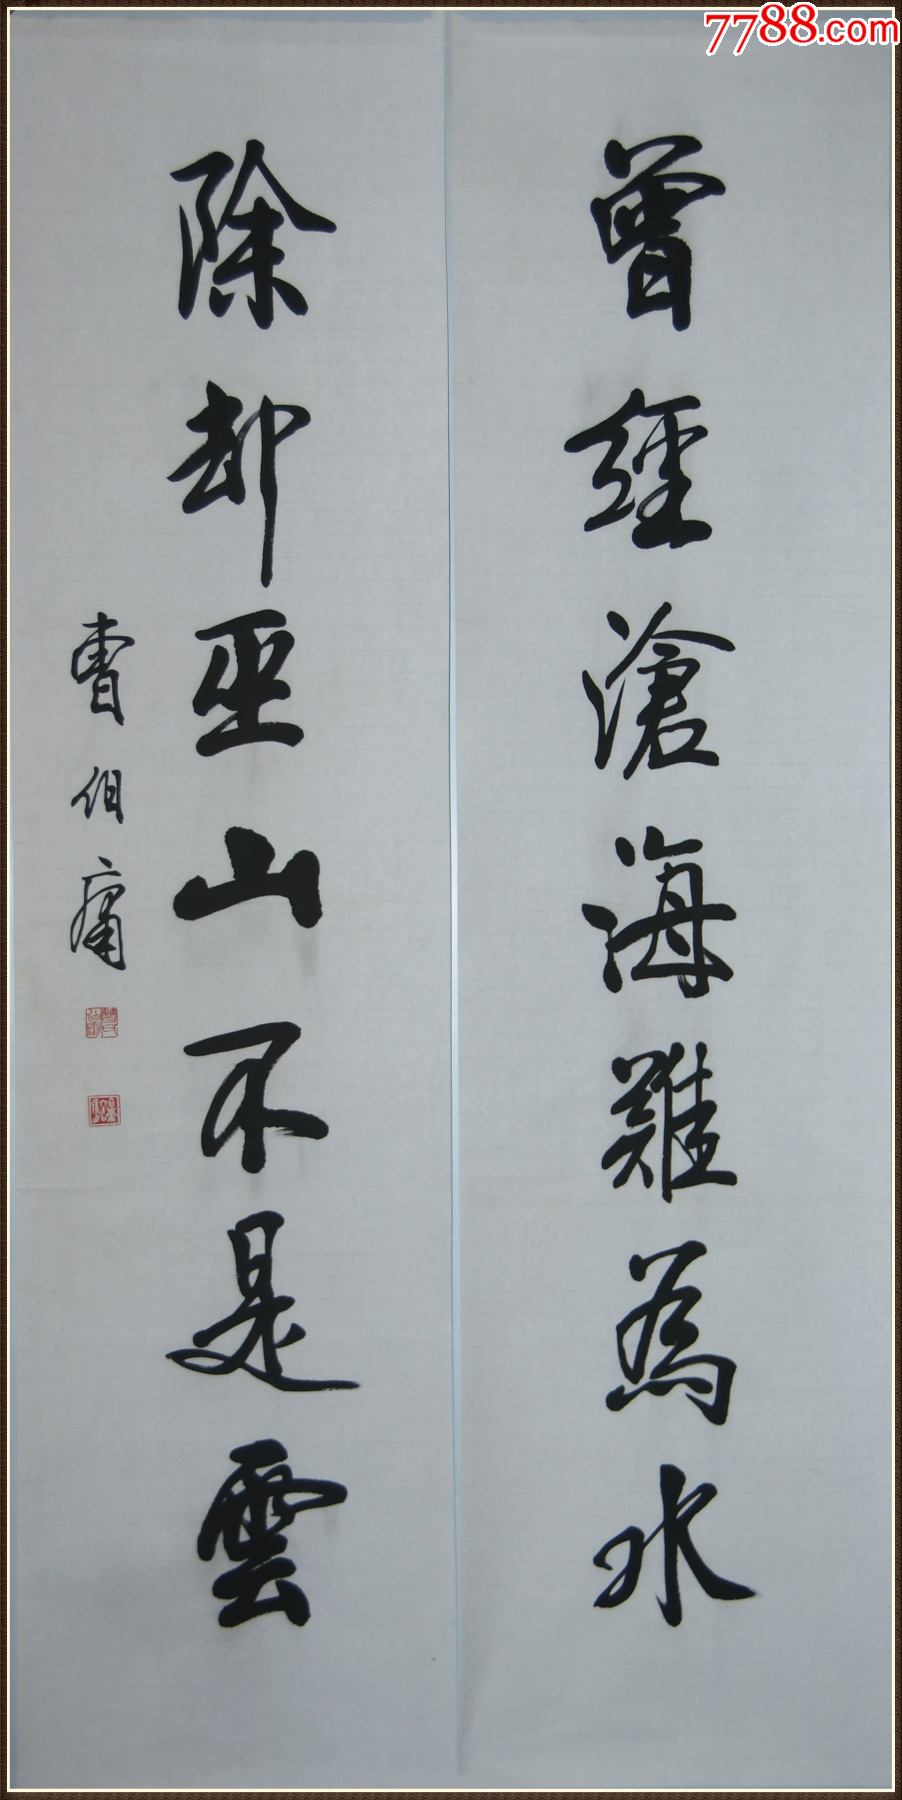 7788.com
曾經滄海難為水
除却巫山不是雲
曹伯庸